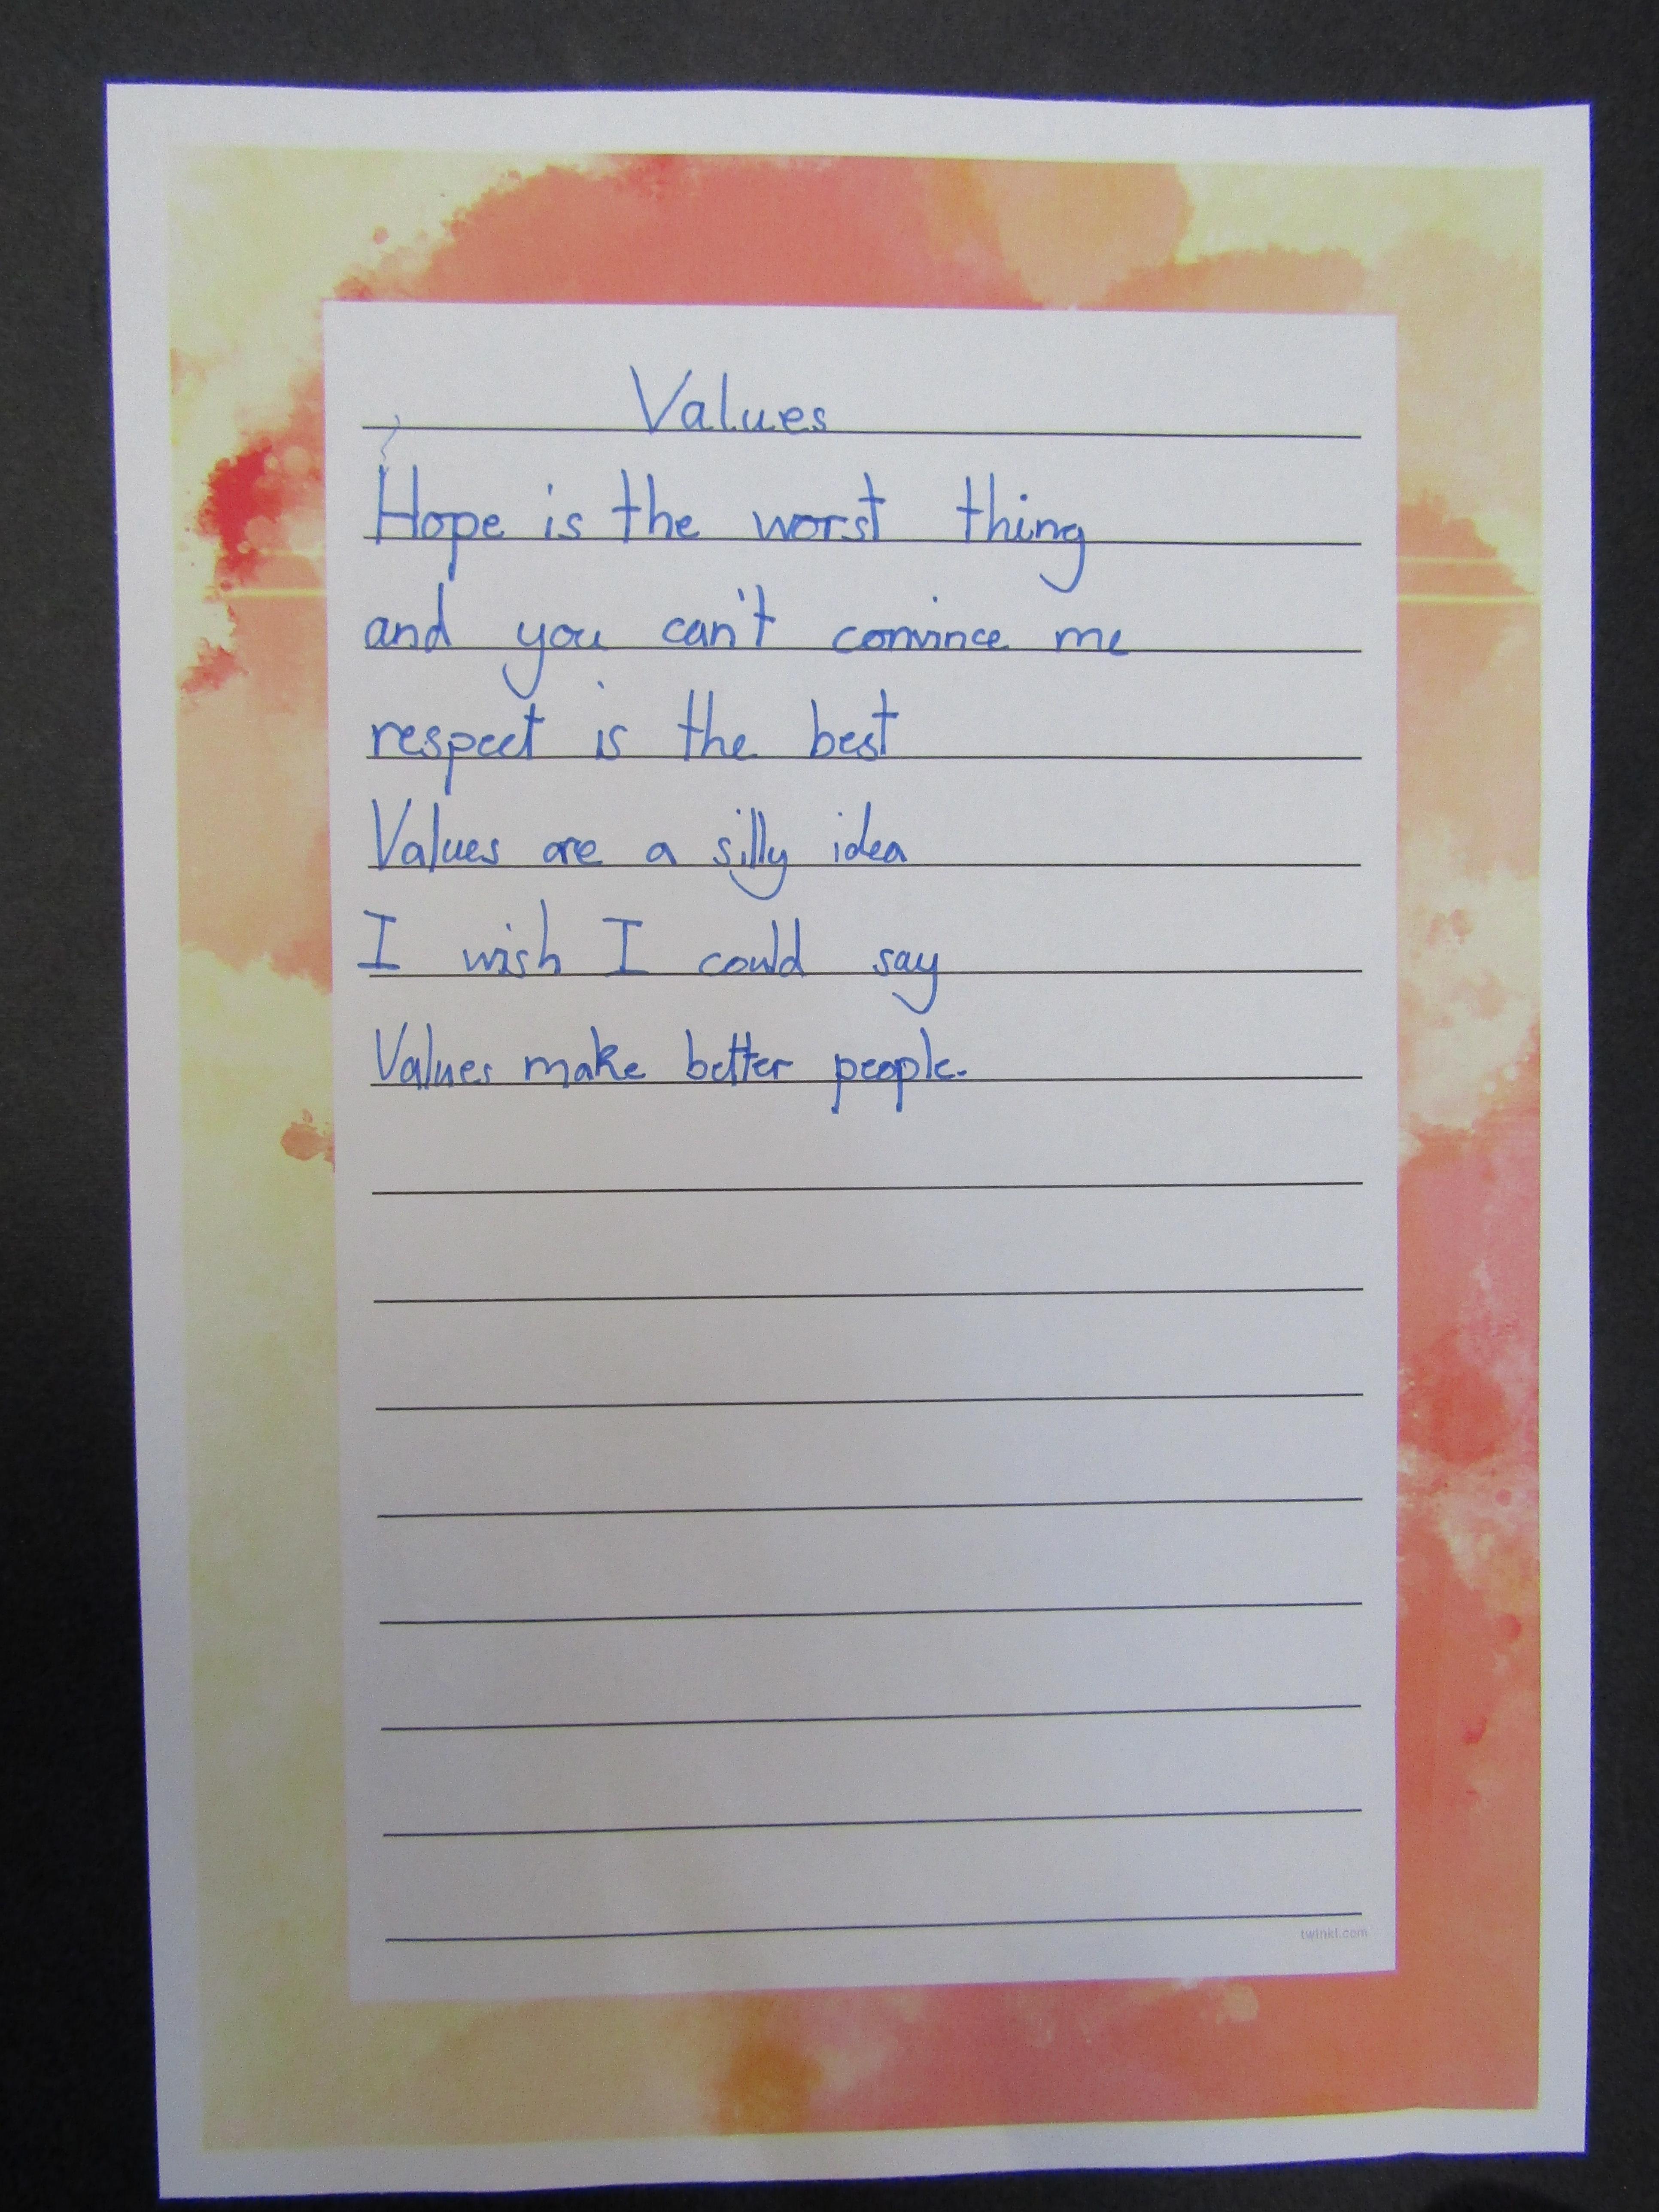 Values
Hope is the worst thing
and you can't convince me
respect is the best
Values are a silly idea
I wish I could say
Values make better people.
twinkl.com